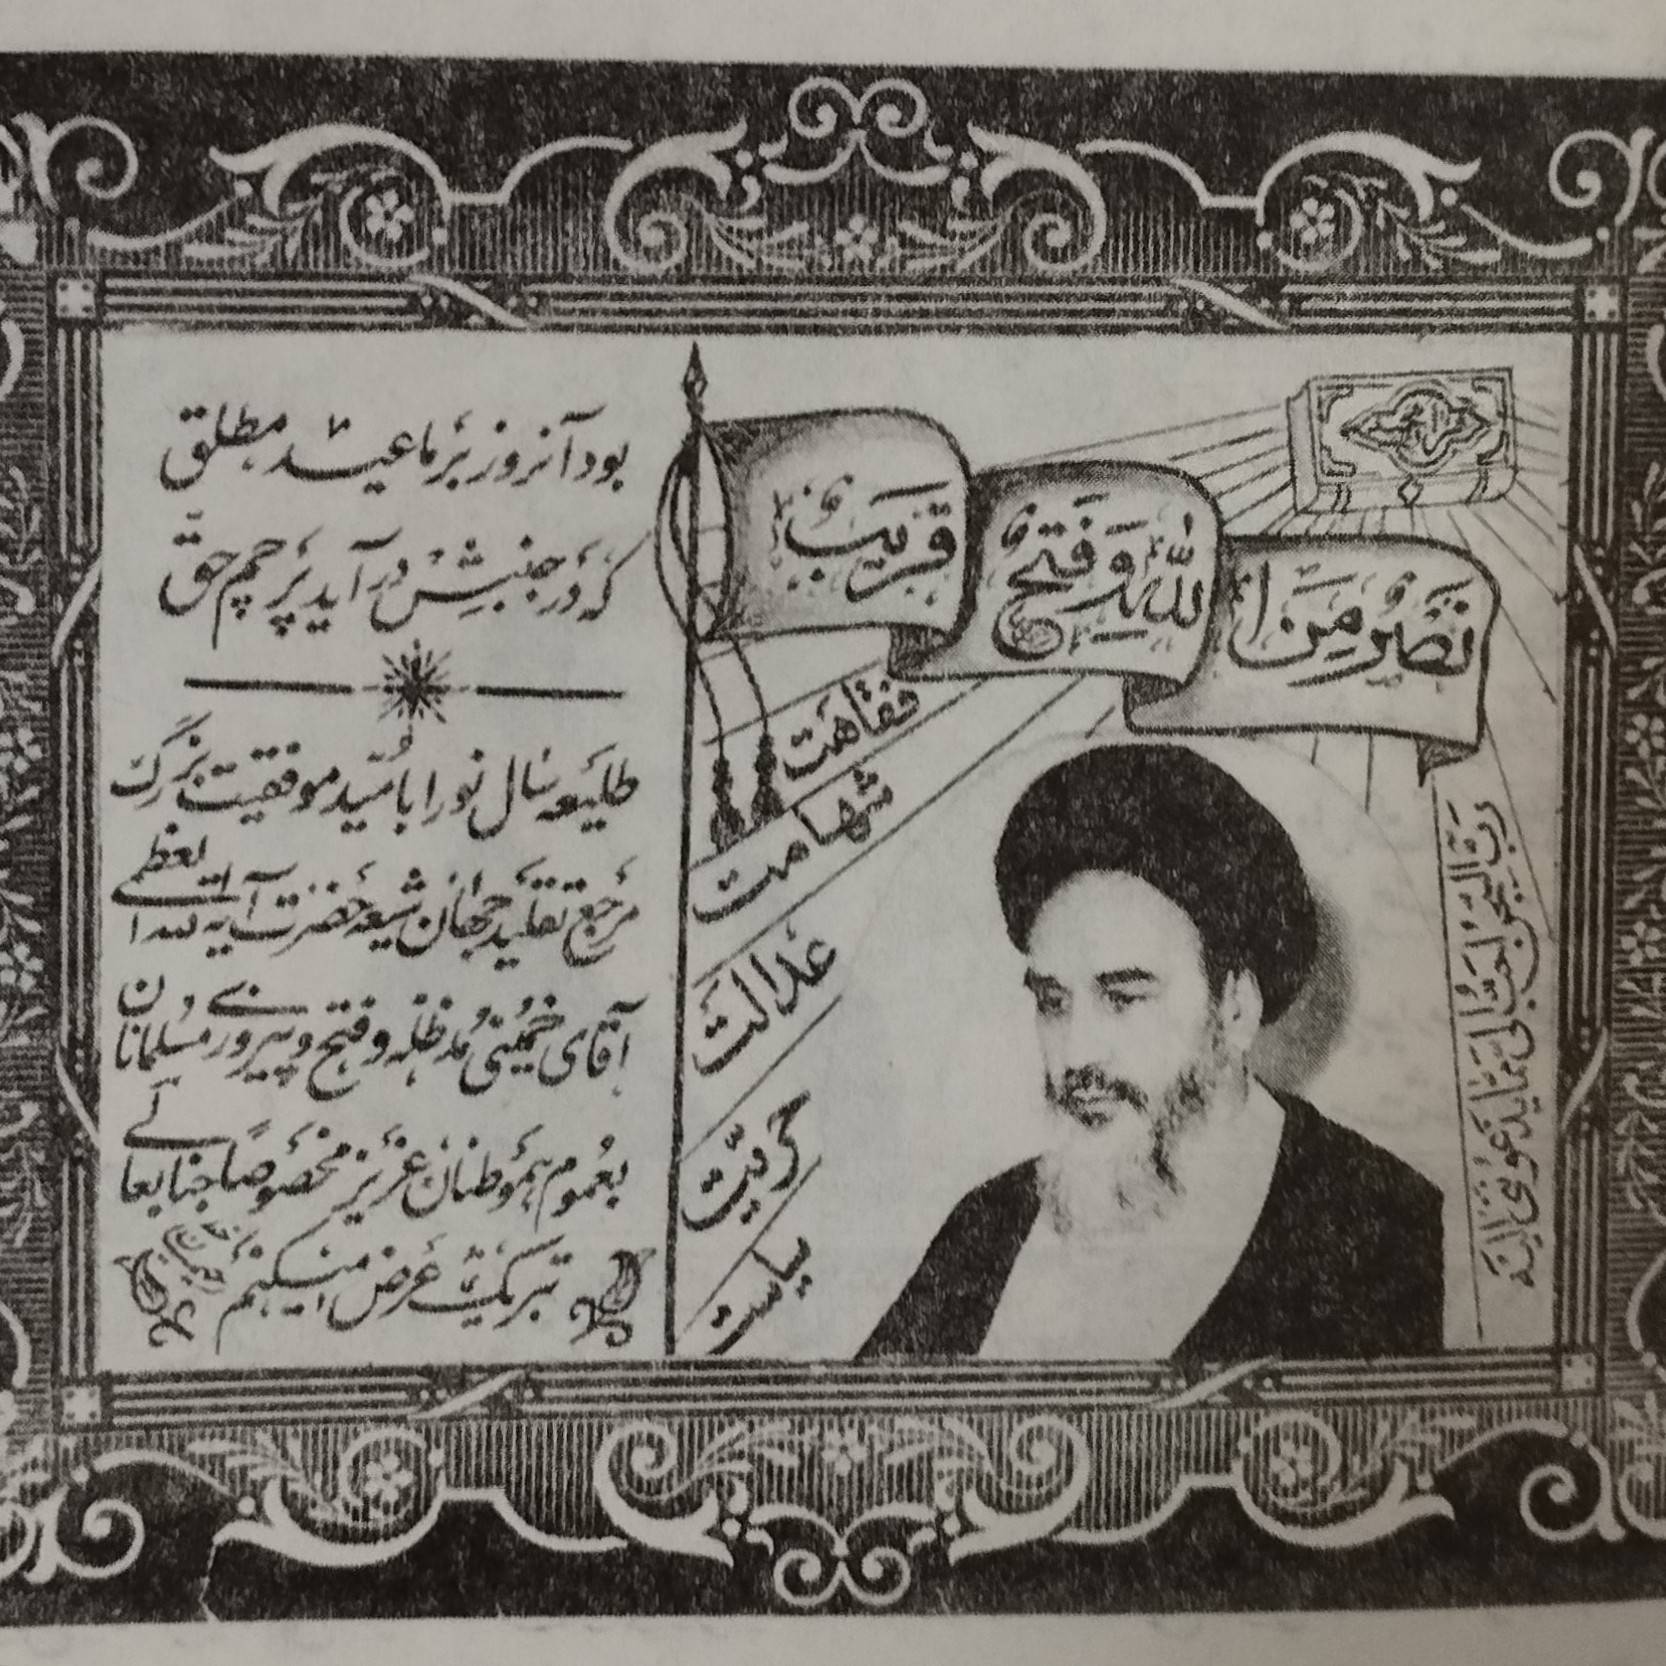 نَصْرٌ مِنَ اللّٰهِ وَ فَتْحٌ قَرِيبٌ
فقاهت
شهامت
عدالت
حریّت
سیاست
رَبِّ السِّجْنُ اَحَبُّ اِلَیَّ مِمّا یَدْعُونَنی اِلَیْهِ
بود آنروز بر ما عید مطلق
که در جنبش در آید پرچم حق
طلیعه سال نو را با امید موفقیت بزرگ
مرجع تقلید جهان شیعه حضرت آیة الله العظمی
آقای خمینی مد ظله و فتح و پیروزی مسلمانان
بعموم هموطنان عزیز مخصوصاً جنابعالی
تبریک عرض میکنم